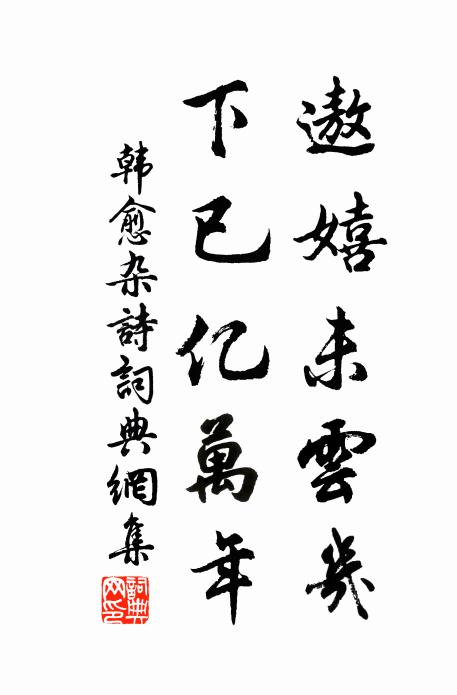 遨嬉未雲幾
下已亿萬年
韩愈杂詩詞典網集
詞典
网印